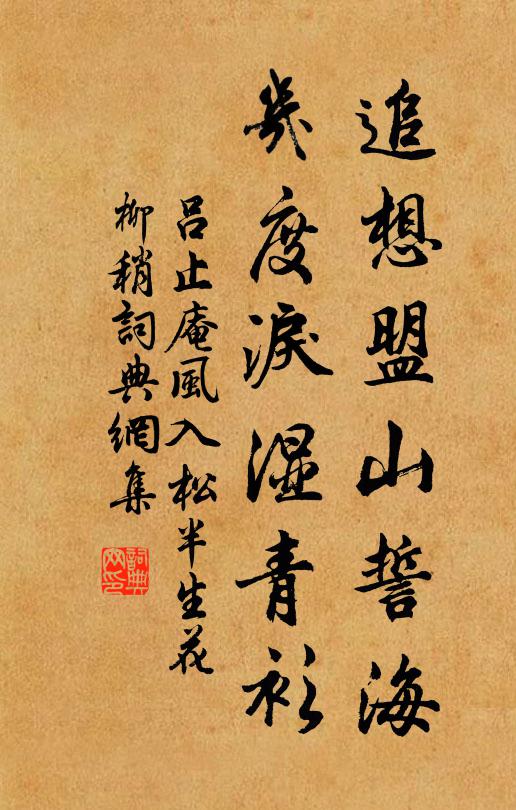 追想盟山誓海
幾度淚湿青衫
吕止庵風入松半生花
柳稍詞典網集
詞典网印